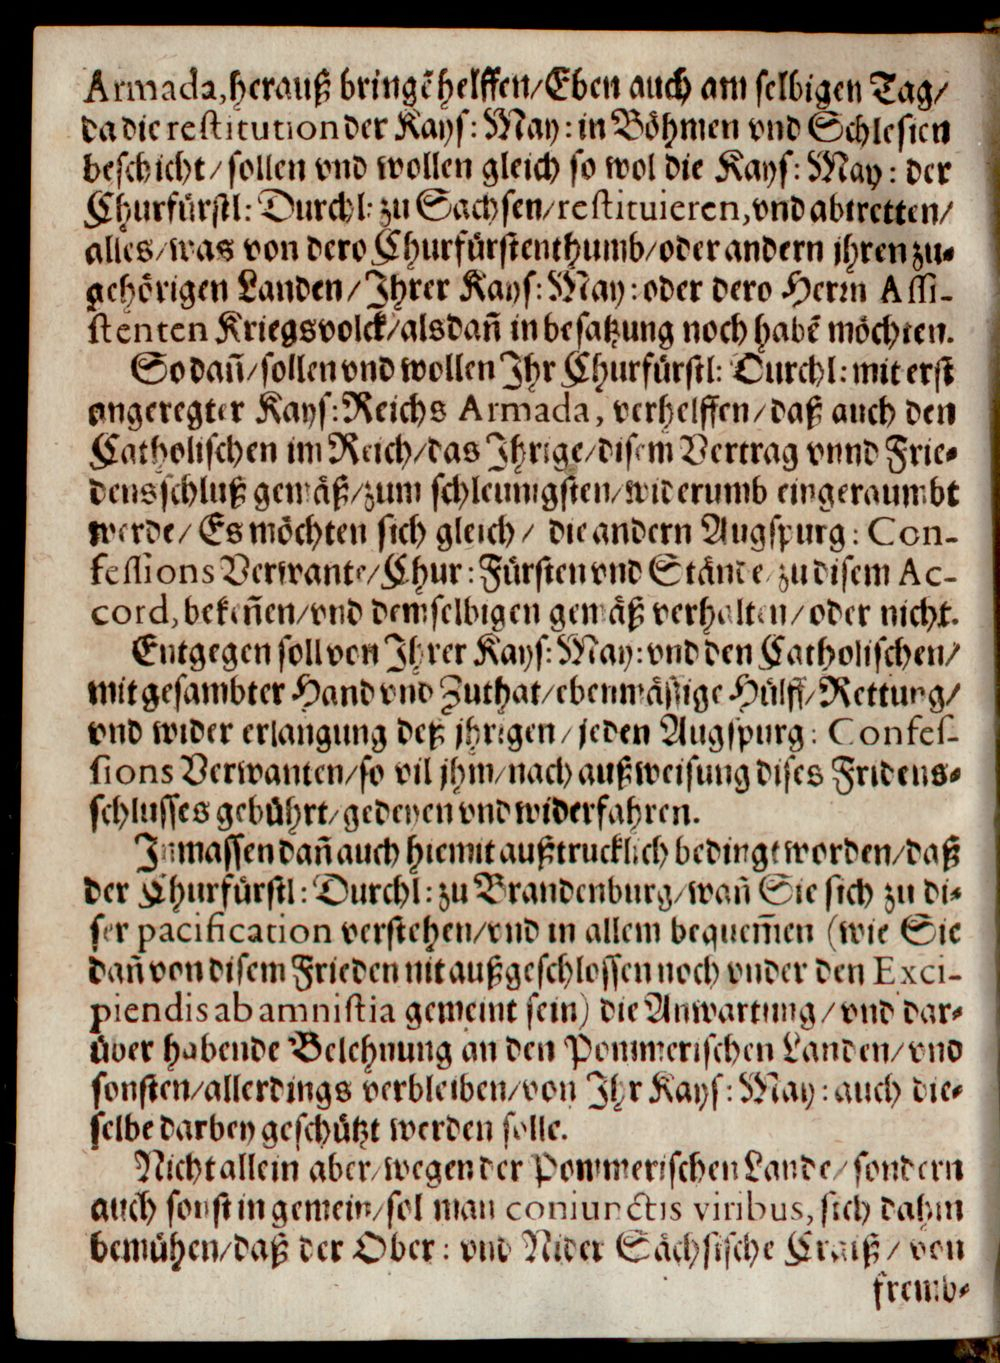 Armada, herauß bringẽ helffen/Eben auch am selbigen Tag/
da die restitution der Kays: May: in Böhmen vnd Schlesien
beschicht/sollen vnd wollen gleich so wol die Kays: May: der
Churfürstl: Durchl: zu Sachsen/restituieren, vnd abtretten/
alles/was von dero Churfürstenthumb/oder andern jhren zu-
gehörigen Landen/Ihrer Kays: May: oder dero Herrn Assi-
stenten Kriegsvolck/alsdañ in besatzung noch habẽ möchten.
So dañ/sollen vnd wollen Ihr Churfürstl: Durchl: mit erst
angeregter Kays: Reichs Armada, verhelffen/daß auch den
Catholischen im Reich/das Ihrige/disem Vertrag vnnd Frie-
densschluß gemäß/zum schleunigsten/widerumb eingeraumbt
werde/Es möchten sich gleich/ die andern Augspurg: Con-
fessions Verwante/Chur: Fürsten vnd Stände/zu disem Ac-
cord, bekeñen/vnd demselbigen gemäß verhalten/oder nicht.
Entgegen soll von Ihrer Kays: May: vnd den Catholischen/
mit gesambter Hand vnd Zuthat/ebenmässige Hülff/Rettung/
vnd wider erlangung deß jhrigen/jeden Augspurg: Confes-
sions Verwanten/so vil jhm/nach außweisung dises Fridens-
schlusses gebührt/gedeyen vnd widerfahren.
Inmassen dañ auch hiemit außtrucklich bedingt worden/daß
der Churfürstl: Durchl: zu Brandenburg/wañ Sie sich zu di-
ser pacification verstehen/vnd in allem bequem̃en (wie Sie
dañ von disem Frieden nit außgeschlossen noch vnder den Exci-
piendis ab amnistia gemeint sein) die Anwartung/vnd dar-
über habende Belehnung an den Pommerischen Landen/vnd
sonsten/allerdings verbleiben/von Ihr Kays: May: auch die-
selbe darbey geschützt werden solle.
Nicht allein aber/wegen der Pommerischen Lande/sondern
auch sonst in gemein/sol man coniunctis viribus, sich dahin
bemühen/daß der Ober: vnd Nider Sächsische Craiß/von
fremb-